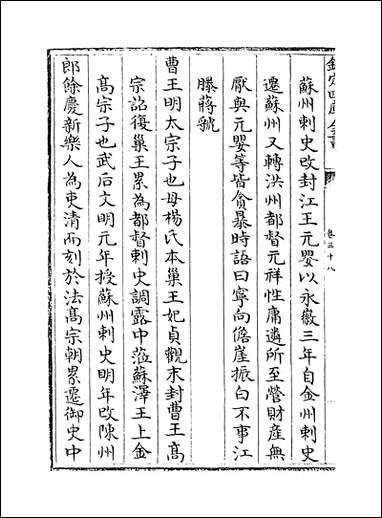 欽定四庫全書
卷三十八
蘇州刺史改封江王元嬰以永徽三年自金州刺史
遷蘇州又轉洪州都督元祥性庸遴所至營財產無
厭與元嬰等皆貪暴時語曰寧向儋崖振白不事江
滕蔣虢
曹王明太宗子也母楊氏本巢王妃貞觀末封曹王髙
宗詔復巢王累為都督刺史調露中蒞蘇澤王上金
髙宗子也武后文明元年授蘇州刺史明年改陳州
郎餘慶新樂人為吏清而刻於法髙宗朝累遷御史中